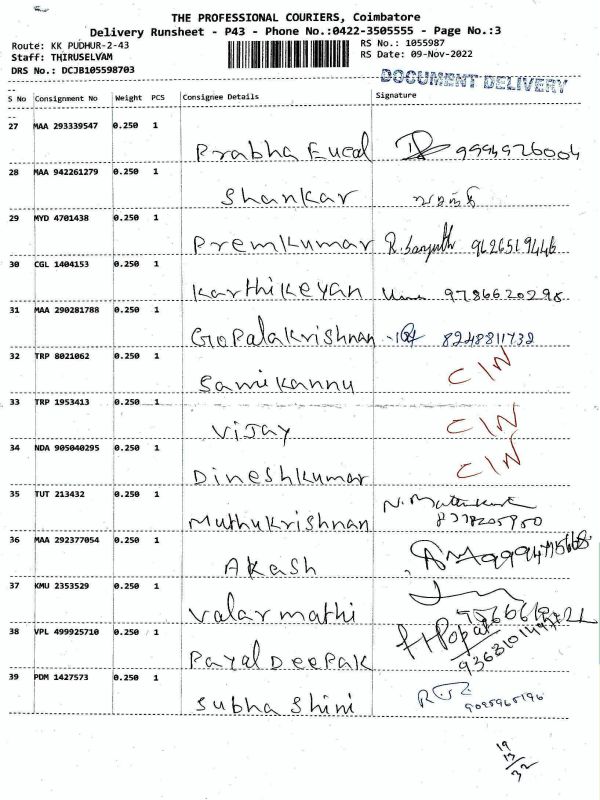 THE PROFESSIONAL COURIERS, Coimbatore
Delivery Runsheet - P43 - Phone No.:0422-3505555 - Page No.:3
Route: KK PUDHUR-2-43
RS No.: 1055987
Staff: THIRUSELVAM
RS Date: 09-Nov-2022
DRS No.: DCJB105598703
DOCUMENT DELIVERY
S No Consignment No Weight PCS Consignee Details Signature
27 MAA 293339547 0.250 1
Prabha Eucal 9994926004
28 MAA 942261279 0.250 1
Shankar
29 MYD 4701438 0.250 1
Premkumar 9626519446
30 CGL 1404153 0.250 1
Karthikeyan Uma 9786620298
31 MAA 290281788 0.250 1
Gopalakrishnan 8248811732
32 TRP 8021062 0.250 1
Samikannu C/N
33 TRP 1953413 0.250 1
Vijay C/N
34 NDA 905040295 0.250 1
Dineshkumar C/N
35 TUT 213432 0.250 1
Muthukrishnan
36 MAA 292377054 0.250 1
Akash
37 KMU 2353529 0.250 1
Valarmathi
38 VPL 499925710 0.250 1
Payal Deepak
39 PDM 1427573 0.250 1
Subha Shini 9095965196
19
13
32